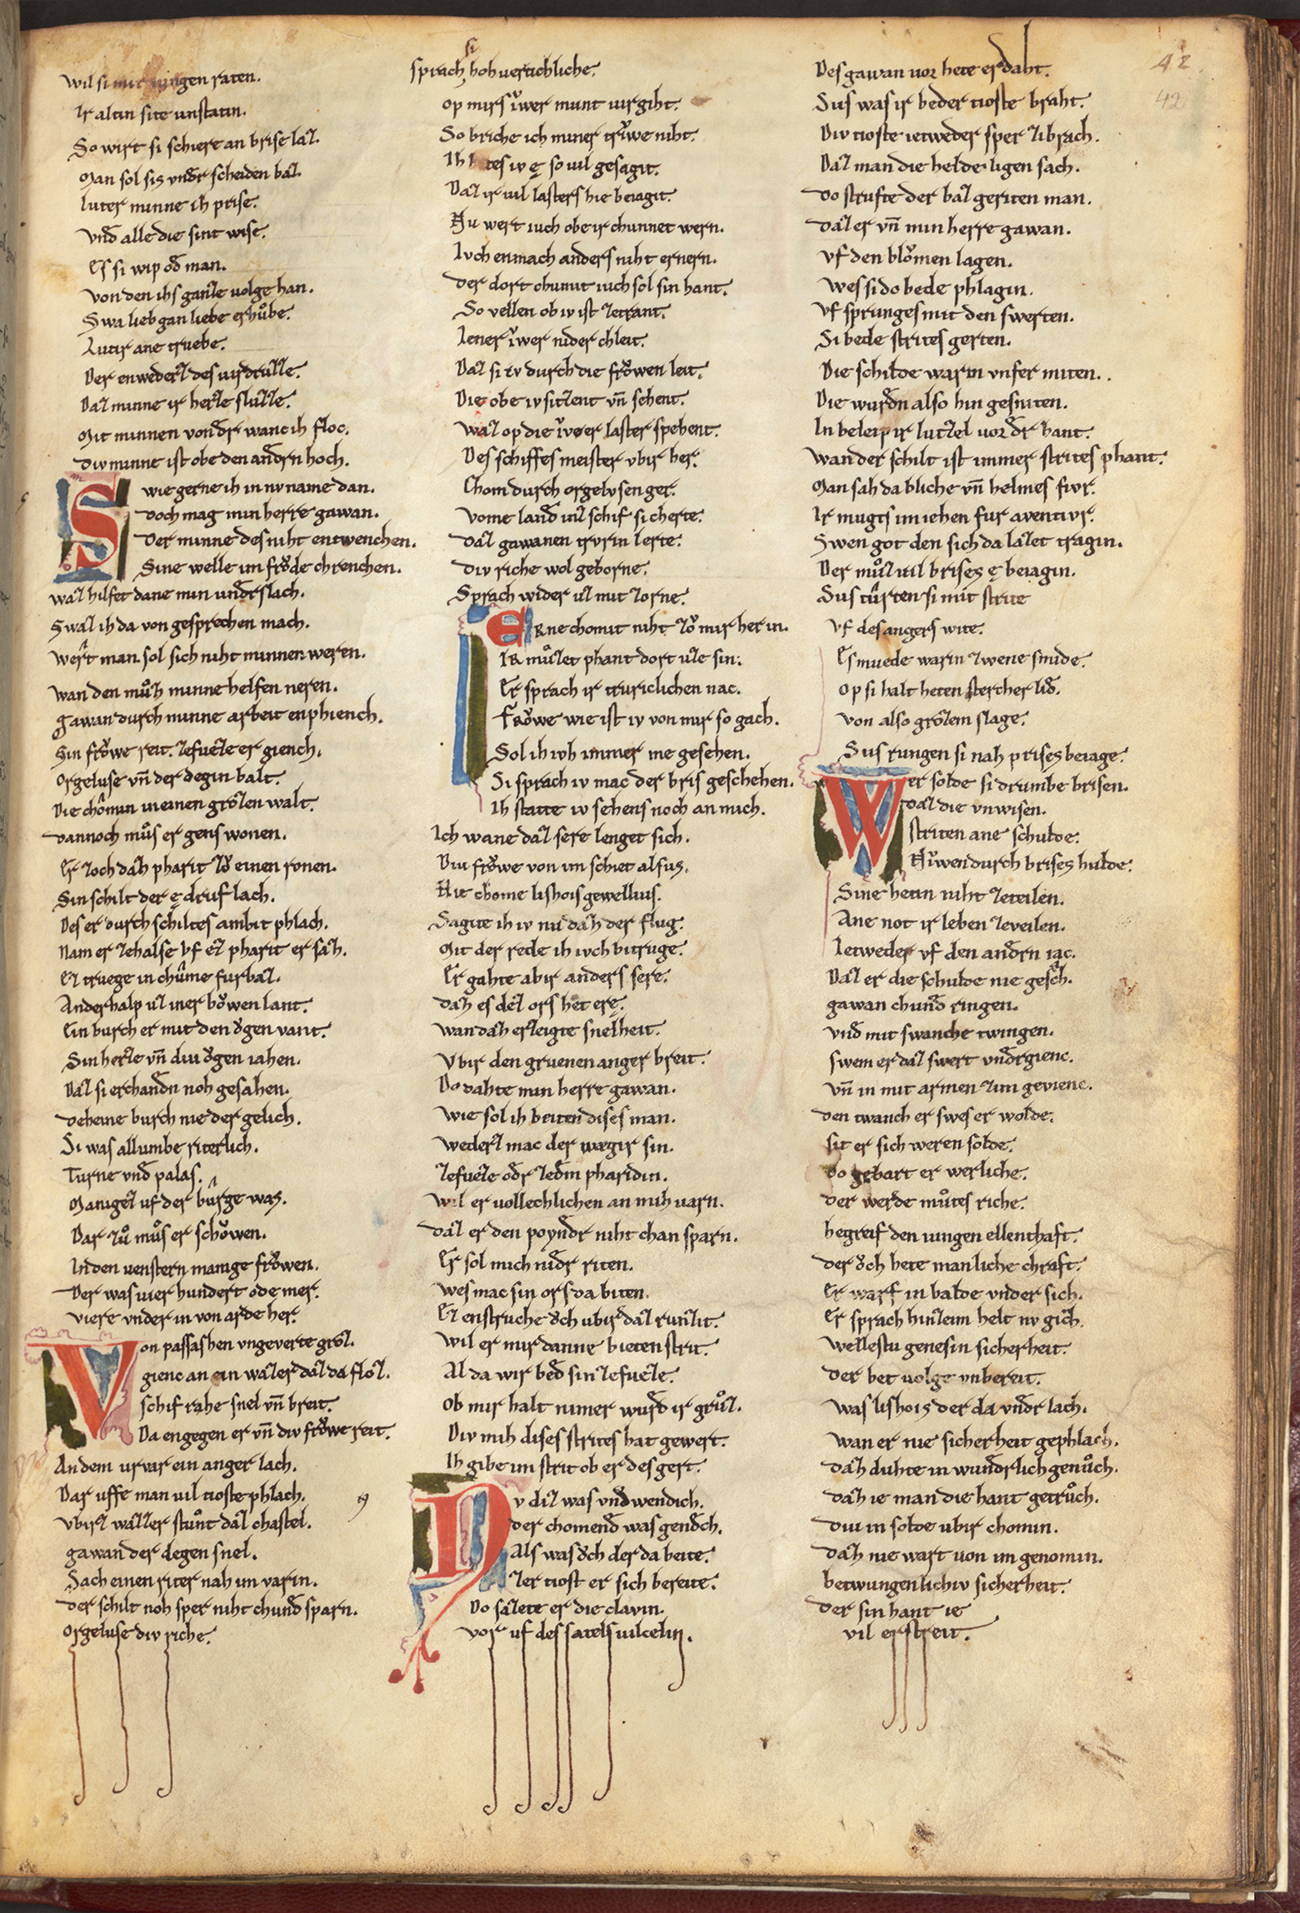 wil si mit ringen raten.
Ir altin site unstatin.
So wirt si schiere an brise laz.
Man sol sis vndr scheiden baz.
luter minne ih prise.
vnd alle die sint wise.
Es si wip od man.
von den ihs ganze volge han.
Swa lieb gan liebe erhůbe.
Lutir ane truebe.
Der enwederz des virdrůzze.
Daz minne ir herze sluzze.
Mit minnen von dr wanc ih floc.
div minne ist obe den andrn hoch.
Swie gerne ih in nv name dan.
doch mag min herre gawan.
der minne des niht entwenchen.
Sine welle im frǒde chrenchen.
waz hilfet dane min undrslach.
Swaz ih da von gesprechen mach.
wert man sol sich niht minnen weren.
wan den můz minne helfen neren.
gawan durch minne arbeit enphiench.
Sin frǒwe reit. zefuezze er giench.
Orgeluse vn̄ der degin balt.
Die chomin in einen grozen walt.
dannoch můs er gens wonen.
Er zoch daz pharit zǒ einen ronen.
Sin schilt der ę druf lach.
Des er durch schiltes ambit phlach.
Nam er zehalse vf ez pharit er saz.
Ez truege in chůme furbaz.
Anderhalp uz iner bǒwen lant.
Ein burch er mit den ǒgen vant.
Sin herze vn̄ diu ǒgen iahen.
Daz si erchandn noh gesahen.
deheine burch nie der gelich.
Si was allumbe riterlich.
Turne vnd palas.
Manigez uf der bůrge was.
Dar zů můs er schǒwen.
In den venstern manige frǒwen.
Der was vier hundert ode mer.
viere vnder in von arde her.
Von passashen vngeverte groz.
gienc an ein wazer daz da floz.
schif rahe snel vn̄ breit.
Da engegen er vn̄ div frǒwe reit.
An dem urvar ein anger lach.
Dar uffe man vil tioste phlach.
vbirz wazzer stůnt daz chastel.
gawan der degen snel.
Sach einen riter nah im varin.
der schilt noh sper niht chund sparn.
Orgeluse div riche.
sprach si hoh vertichliche.
op mirs iwer munt virgiht.
So briche ich miner trǐwe niht.
Ih tes iv ę so vil gesagit.
Daz ir vil lasters hie beiagit.
Nu wert iuch obe ir chunnet wern.
Ivch enmach anders niht ernern.
der dort chumit iuch sol sin hant.
So vellen ob iv ist zetrant.
Iener iwer nider chleit.
Daz si iv durch die frǒwen leit.
Die obe iv sitzent vn̄ sehent.
waz op die iwer laster spehent.
Des schiffes meister vbir her.
Chom durch orgelvsen ger.
vome land inz schif si cherte.
daz gawanen trvrin lerte.
div riche wol geborne.
Sprach wider uz mit zorne.
Irne chomit niht zǒ mir her in.
Ir můzet phant dort uze sin.
Er sprach ir truriclichen nac.
Frǒwe wie ist iv von mir so gach.
Sol ih ivh immer me gesehen.
Si sprach iv mac der bris geschehen.
Ih statte iv sehens noch an mich.
Ich wane daz sere lenget sich.
Diu frǒwe von im schiet alsus.
Hie chome lishois gewellius.
Sagite ih iv nu daz der flug.
Mit der rede ih ivch bitruge.
Er gahte abir anders sere.
daz es dez ors het ere.
wan daz erzeigte snelheit.
vbir den gruenen anger breit.
Do dahte min herre gawan.
wie sol ih beiten dises man.
wederz mac der wægir sin.
zefuezze odr zedm pharidin.
wil er vollechlichen an mih varn.
daz er den poyndr niht chan sparn.
Er sol mich nidr riten.
wes mac sin ors da biten.
Ez enstruche ǒch ubir daz runzit.
wil er mir danne bieten strit.
Al da wir bed sin zefuezze.
Ob mir halt nimer wurd ir grůz.
Div mih dises strites hat gewert.
Ih gibe im strit ob er des gert.
Nv diz was vndwendich.
der chomend was gendch.
Als was ǒch der da beite.
zer tiost er sich bereite.
Do sazete er die clavin.
vor uf des satels vilcelin.
Des gawan vor hete erdaht.
Sus was ir beder tioste braht.
Div tioste ietweder sper zibrach.
Daz man die helde ligen sach.
do strufte der baz geriten man.
daz er vn̄ min herre gawan.
vf den blǒmen lagen.
wes si do bede phlagin.
vf springes mit den swerten.
Si bede strites gerten.
Die schilde warin vnfermiten.
Die wurdn also hin gesniten.
In beleip ir lutzel vor dr hant.
wan der schilt ist immer strites phant.
Man sah da bliche vn̄ helmes fivr.
Ir mugts im iehen fur aventivr.
Swen got den sich da lazet tragin.
Der můz vil brises ę beiagin.
Sus tůrten si mit strite
vf des angers wite.
Es muede warin zwene smide.
op si halt heten stercher lid.
von also grozem slage.
Sus rungen si nah prises beiage.
Wer solde si drumbe brisen.
daz die vnwisen.
striten ane schulde.
Nǔwen durch brises hulde.
Sine hetin niht zeteilen.
Ane not ir leben zeveilen.
Ietweder vf den andrn iac.
Daz er die schulde nie gesch.
gawan chund ringen.
vnd mit swanche twingen.
swem er daz swert vndrgienc.
vn̄ in mit armen zim gevienc.
den twanch er swes er wolde.
sit er sich weren solde.
do gebart er werliche.
der werde můtes riche.
begreif den iungen ellenthaft.
der ǒch hete manliche chraft.
Er warf in balde vnder sich.
Er sprach hinzeim helt nv gich.
wellestu genesin sicherheit.
der bet volge vnbereit.
was lishois der da vndr lach.
wan er nie sicherheit gephlach.
daz duhte in wundrlich genůch.
daz ie man die hant getrůch.
diu in solde ubir chomin.
daz nie wart von im genomin.
betwungenlichiv sicherheit.
der sin hant ie
vil erstreit.
42
42